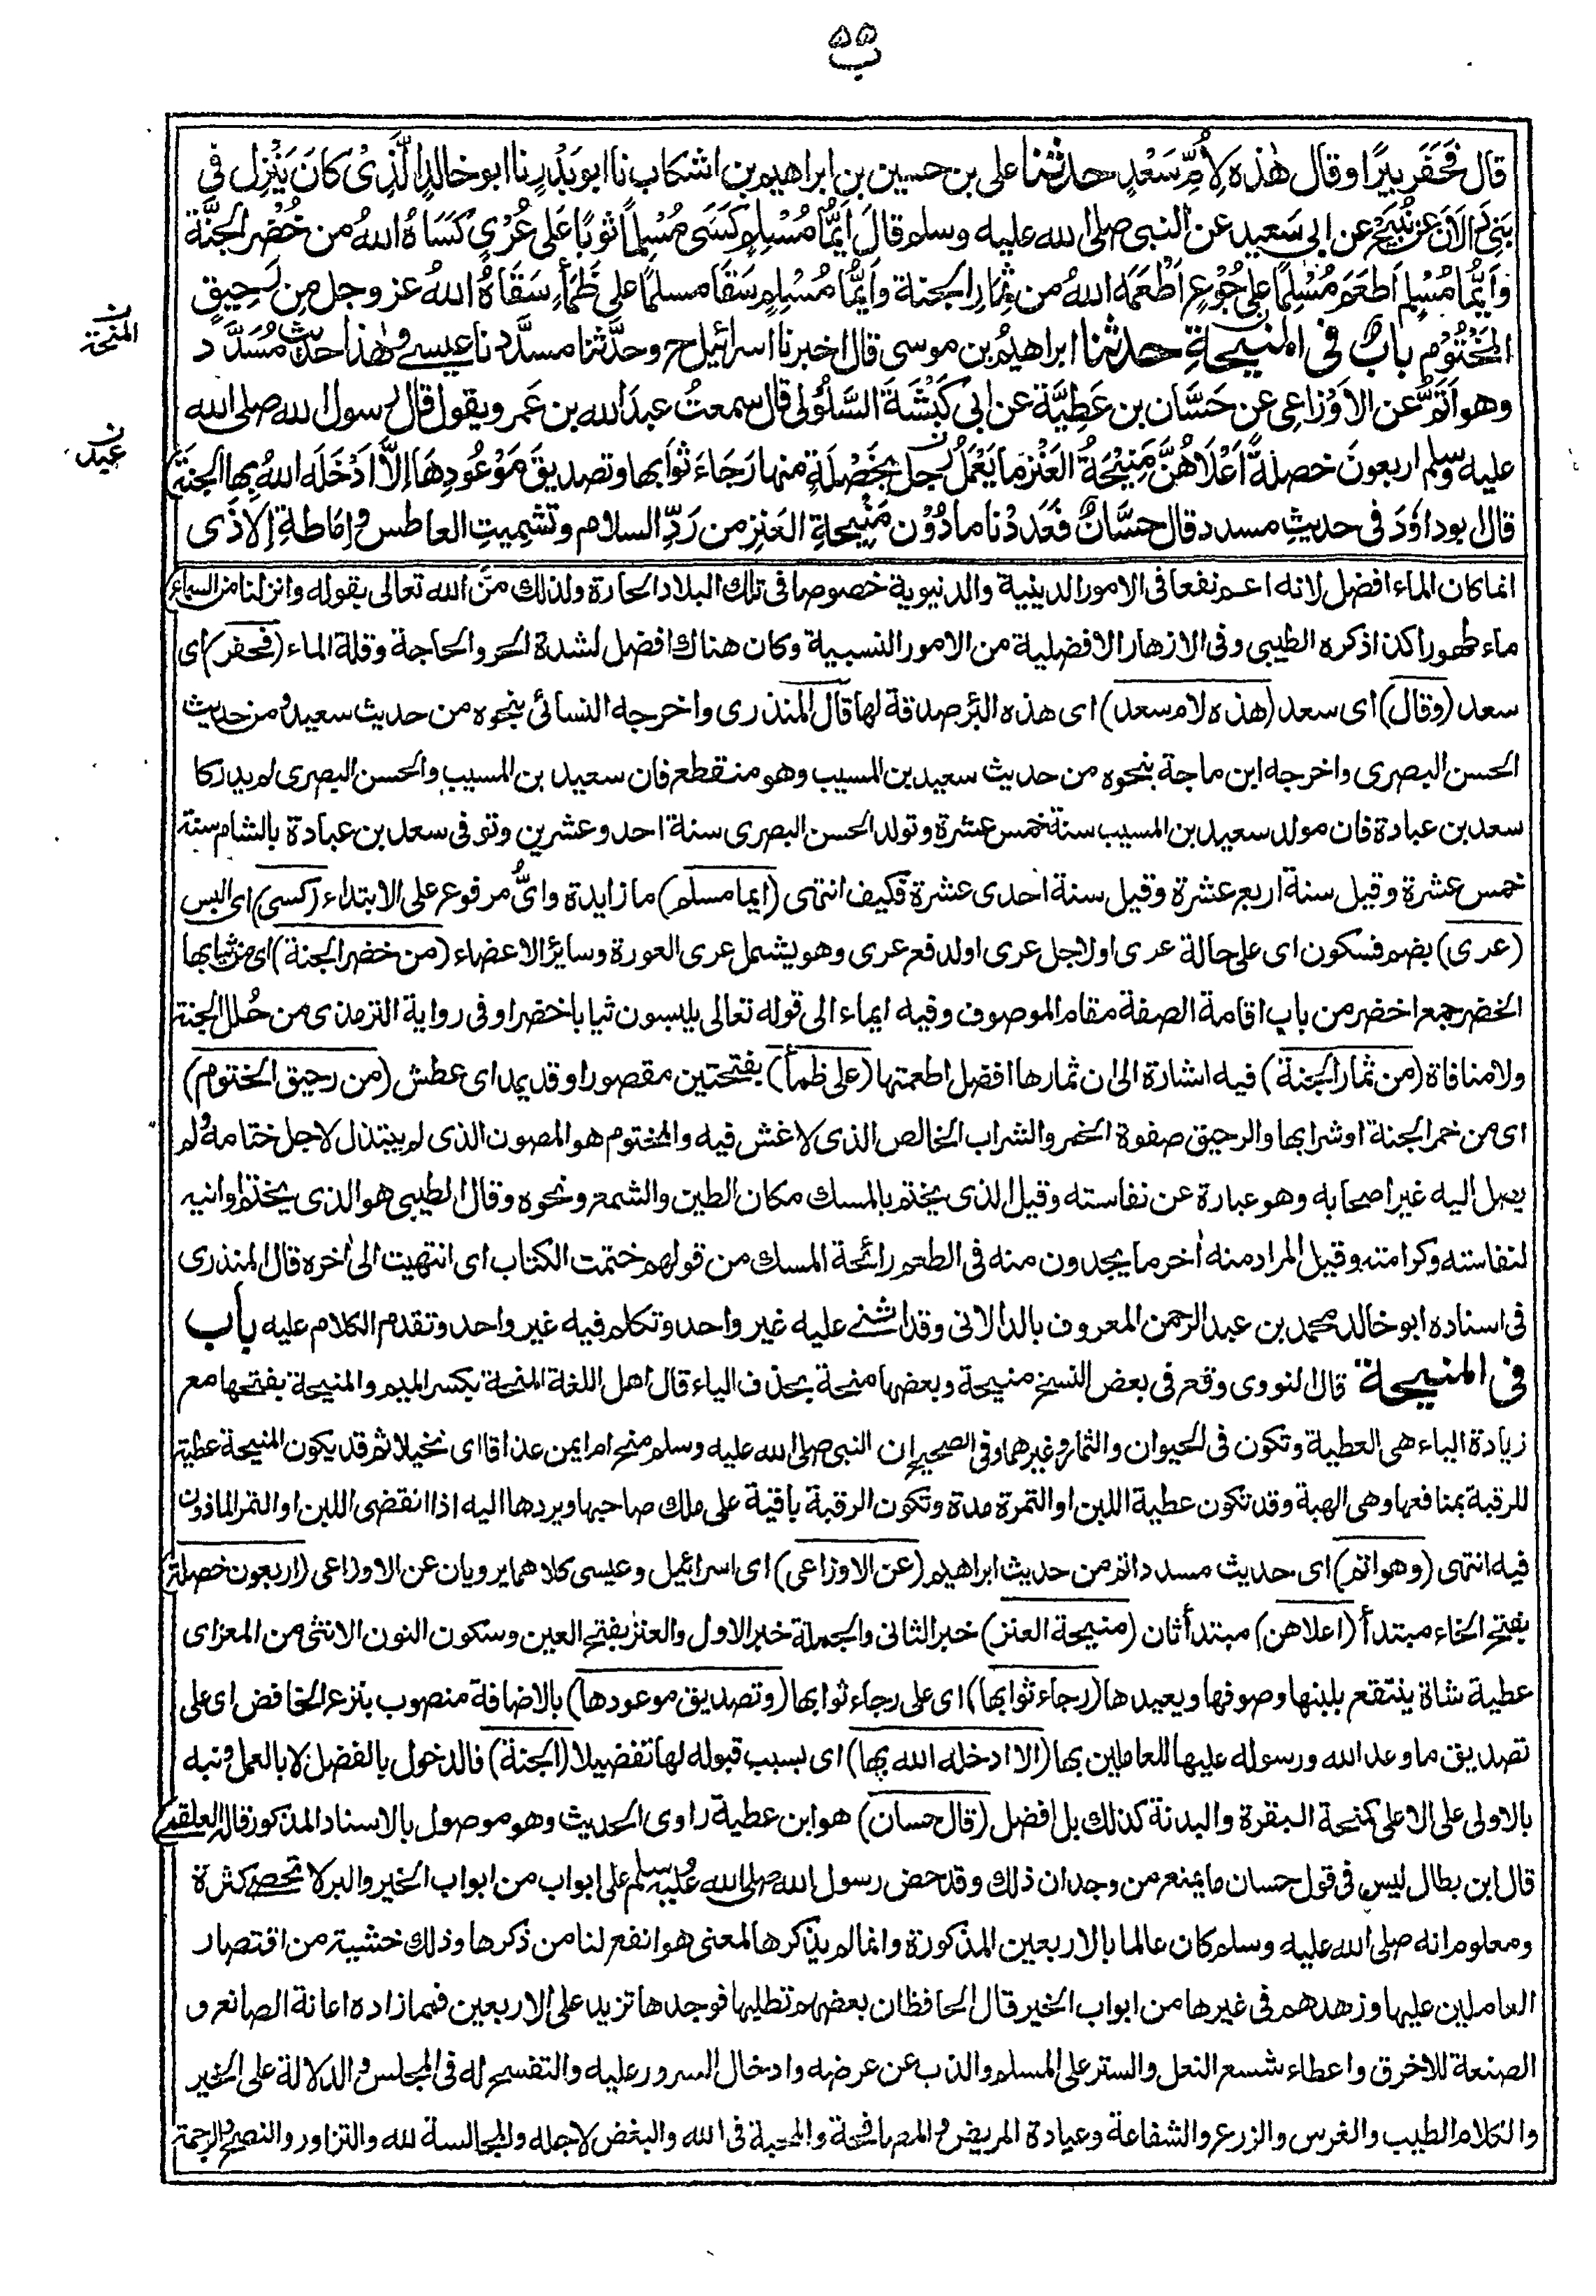 ٥٥
ب
قال فَحَفَرَ بيرًا وقال هٰذه لِأُمِّ سَعْدٍ حدثنا على بن حسين بن ابراهيم بن اشكاب نا ابو بَدْرٍ نا ابو خالدٍ الَّذِىْ كانَ يَنْزِل فى
بَنِىْ دَالَانَ عن نُبَيْحٍ عن ابى سَعيدٍ عن النبى صلى الله عليه وسلم قالَ اَيُّمَا مُسْلِمٍ كَسَى مُسْلِمًا ثوبًا عَلى عُرْيٍ كَسَاهُ اللهُ من خُضْرِ الجنَّة
وَاَيُّمَا مُسْلِمٍ اَطعَمَ مُسْلِمًا على جُوْعٍ اَطْعَمَه اللهُ من ثِمَارِ الجنة وَاَيُّمَا مُسْلِمٍ سَقَا مسلمًا على ظَمَأٍ سَقَاهُ اللهُ عز وجل مِن رَحِيقٍ
المَخْتُوْمِ بابٌ فى المَنِيْحَةِ حدثنا ابراهيمُ بن موسى قال اخبرنا اسرائيل ح وحدَّثنا مسدَّد نا عيسى وهٰذا حديثُ مُسَدَّدٍ
المنحة
وهو اَتَمُّ عن الاَوْزاعِى عن حَسَّان بن عَطِيَّة عن ابى كَبْشَةَ السَّلُوْلى قال سمعتُ عبدَ الله بن عَمرو يقول قال رسول الله صلى الله
عليه وسلم اربعونَ خصلةً اَعْلَاهُنَّ مَنِيْحَةُ العَنْزِ ما يَعْمَلُ رجلٌ بِخَصْلَةٍ منها رَجَاءَ ثوابها وتصديقَ مَوْعُودِهَا إلَّا اَدْخَلَه اللهُ بها الجنةَ
عبد
قال ابو داوٗدَ فى حديثِ مسدد قال حسَّانٌ فَعَدَدْنا مادُوْن مَنِيحةِ العَنزِ من رَدِّ السلام وتشمِيتِ العاطس وإمَاطةِ الاَذَى
انما كان الماء افضل لانه اعم نفعا فى الامور الدينية والدنيوية خصوصا فى تلك البلاد الحارة ولذلك منَّ الله تعالى بقوله وانزلنا من السماء
ماء طهورا كذا ذكره الطيبى وفى الازهار الافضلية من الامور النسبية وكان هناك افضل لشدة الحر والحاجة وقلة الماء (فحفر) اى
سعد (وقال) اى سعد (هذه لام سعد) اى هذه البئر صدقة لها قال المنذرى واخرجه النسائى بنحوه من حديث سعيد ومن حديث
الحسن البصرى واخرجه ابن ماجة بنحوه من حديث سعيد بن المسيب وهو منقطع فان سعيد بن المسيب والحسن البصرى لم يدركا
سعد بن عبادة فان مولد سعيد بن المسيب سنة خمس عشرة وتولد الحسن البصرى سنة احد وعشرين وتوفى سعد بن عبادة بالشام سنة
خمس عشرة وقيل سنة اربع عشرة وقيل سنة احدى عشرة فكيف انتهى (ايما مسلم) ما زايدة واىُّ مرفوع على الابتداء (كسى) اى البس
(عرى) بضم فسكون اى على حالة عرى او لاجل عرى او لدفع عرى وهو يشمل عرى العورة وسائر الاعضاء (من خضر الجنة) اى من ثيابها
الخضر جمع اخضر من باب اقامة الصفة مقام الموصوف وفيه ايماء الى قوله تعالى يلبسون ثيابا خضرا وفى رواية الترمذى من حُلل الجنة
ولا منافاة (من ثمار الجنة) فيه اشارة الى ان ثمارها افضل اطعمتها (على ظمأ) بفتحتين مقصورا وقد يمد اى عطش (من رحيق المختوم)
اى من خمر الجنة او شرابها والرحيق صفوة الخمر والشراب الخالص الذى لا غش فيه والمختوم هو المصون الذى لم يبتذل لاجل ختامه ولم
يصل اليه غير اصحابه وهو عبارة عن نفاسته وقيل الذى يختم بالمسك مكان الطين والشمع ونحوه وقال الطيبى هو الذى يختم اوانيه
لنفاسته وكرامته وقيل المراد منه اٰخر ما يجدون منه فى الطعم رائحة المسك من قولهم ختمت الكتاب اى انتهيت الى اٰخره قال المنذرى
فى اسناده ابو خالد محمد بن عبد الرحمن المعروف بالدالانى وقد اثنى عليه غير واحد وتكلم فيه غير واحد وتقدم الكلام عليه باب
فى المنيحة قال النووى وقع فى بعض النسخ منيحة وبعضها منحة بحذف الياء قال اهل اللغة المنحة بكسر الميم والمنيحة بفتحها مع
زيادة الياء هى العطية وتكون فى الحيوان والثمار وغيرهما وفى الصحيح ان النبى صلى الله عليه وسلم منح ام ايمن عذاقا اى نخيلا ثم قد يكون المنيحة عطية
للرقبة بمنافعها وهى الهبة وقد تكون عطية اللبن او التمرة مدة وتكون الرقبة باقية على ملك صاحبها ويردها اليه اذا انقضى اللبن او التمر الماذون
فيه انتهى (وهو اتم) اى حديث مسدد اتم من حديث ابراهيم (عن الاوزاعى) اى اسرائيل وعيسى كلاهما يرويان عن الاوزاعى (اربعون خصلة)
بفتح الخاء مبتدأ (اعلاهن) مبتدأ ثان (منيحة العنز) خبر الثانى والجملة خبر الاول والعنز بفتح العين وسكون النون الانثى من المعز اى
عطية شاة ينتقع بلبنها وصوفها ويعيدها (رجاء ثوابها) اى على رجاء ثوابها (وتصديق موعودها) بالاضافة منصوب بنزع الخافض اى على
تصديق ما وعد الله ورسوله عليها للعاملين بها (الا ادخله الله بها) اى بسبب قبوله لها تفضيلا (الجنة) فالدخول بالفضل لا بالعمل ونبه
بالاولى على الاعلى كمنحة البقرة والبدنة كذلك بل افضل (قال حسان) هو ابن عطية راوى الحديث وهو موصول بالاسناد المذكور قاله العلقمى
قال ابن بطال ليس فى قول حسان ما يمنع من وجدان ذلك وقد حض رسول الله صلى الله عليه وسلم على ابواب من ابواب الخير والبر لا تحصى كثرة
ومعلوم انه صلى الله عليه وسلم كان عالما بالاربعين المذكورة وانما لم يذكرها لمعنى هو انفع لنا من ذكرها وذلك خشية من اقتصار
العاملين عليها وزهدهم فى غيرها من ابواب الخير قال الحافظ ان بعضهم تطلبها فوجدها تزيد على الاربعين فمما زاده اعانة الصانع و
الصنعة للاخرق واعطاء شسع النعل والستر على المسلم والذب عن عرضه وادخال السرور عليه والتفسح له فى المجلس والدلالة على الخير
والكلام الطيب والغرس والزرع والشفاعة وعيادة المريض والمصافحة والمحبة فى الله والبغض لاجله والمجالسة لله والتزاور والنصح والرحمة